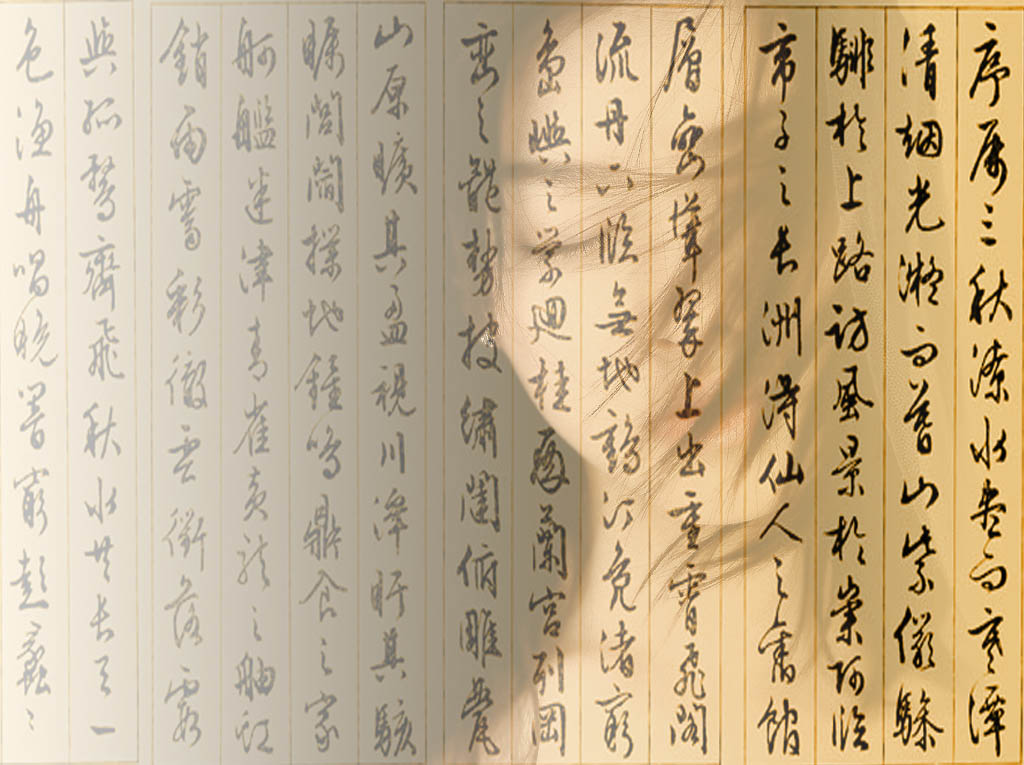 序属三秋潦水盡而寒潭
清烟光凝而暮山紫儼驂
騑於上路訪風景於崇阿臨
帝子之長洲得仙人之舊館
層巒聳翠上出重霄飛閣
流丹下臨無地鶴汀鳧渚窮
島嶼之縈迴桂殿蘭宮列岡
巒之體勢披繡闥俯雕甍
山原曠其盈視川澤盱其駭
矚閭閻撲地鐘鳴鼎食之家
舸艦迷津青雀黃龍之舳虹
銷雨霽彩徹雲衢落霞
與孤鶩齊飛秋水共長天一
色漁舟唱晚響窮彭蠡之